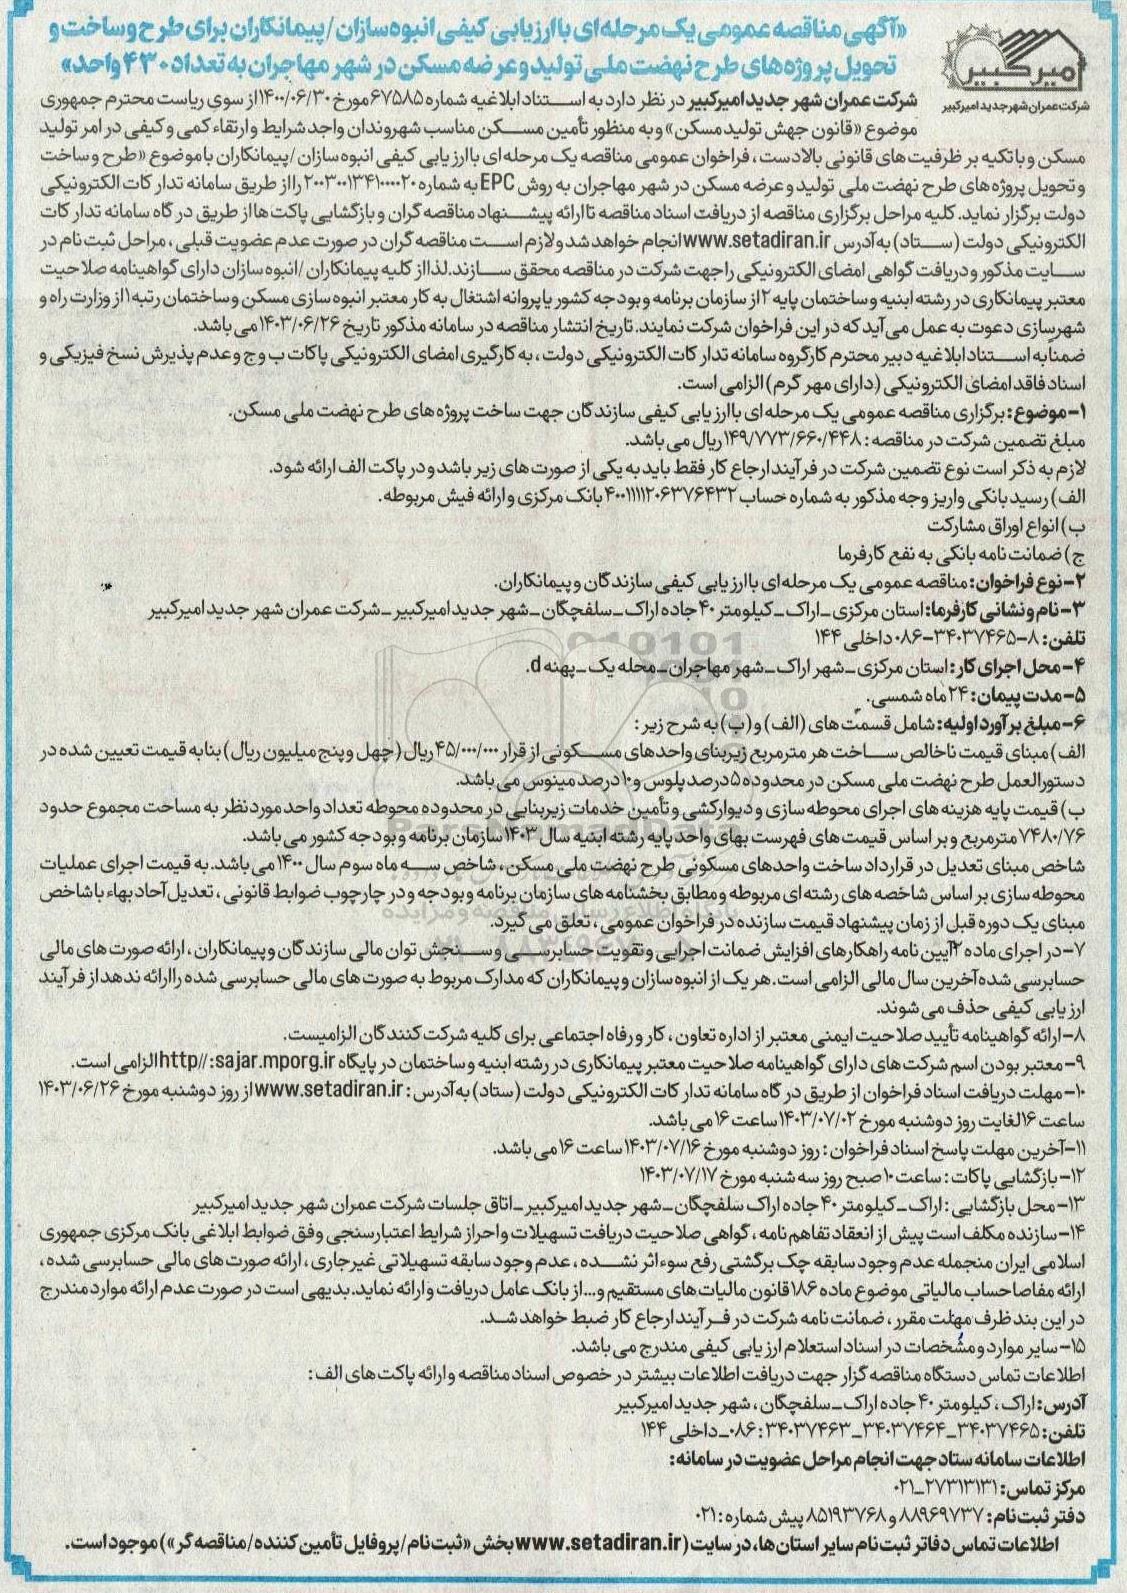 «آگهی مناقصه عمومی یک مرحله‌ای با ارزیابی کیفی انبوه‌سازان/پیمانکاران برای طرح و ساخت و
تحویل پروژه‌های طرح نهضت ملی تولید و عرضه مسکن در شهر مهاجران به تعداد ۴۳۰ واحد»
امیرکبیر
شرکت عمران شهر جدید امیرکبیر
شرکت عمران شهر جدید امیرکبیر در نظر دارد به استناد ابلاغیه شماره ۶۷۵۸۵ مورخ ۱۴۰۰/۰۶/۳۰ از سوی ریاست محترم جمهوری
موضوع «قانون جهش تولید مسکن» و به منظور تأمین مسکن مناسب شهروندان واجد شرایط و ارتقاء کمی و کیفی در امر تولید
مسکن و با تکیه بر ظرفیت‌های قانونی بالادست، فراخوان عمومی مناقصه یک مرحله‌ای با ارزیابی کیفی انبوه سازان/پیمانکاران با موضوع «طرح و ساخت
و تحویل پروژه‌های طرح نهضت ملی تولید و عرضه مسکن در شهر مهاجران به روش EPC به شماره ۲۰۰۳۰۰۱۳۴۱۰۰۰۰۲۰ را از طریق سامانه تدارکات الکترونیکی
دولت برگزار نماید. کلیه مراحل برگزاری مناقصه از دریافت اسناد مناقصه تا ارائه پیشنهاد مناقصه گران و بازگشایی پاکت‌ها از طریق درگاه سامانه تدارکات
الکترونیکی دولت (ستاد) به آدرس www.setadiran.ir انجام خواهد شد و لازم است مناقصه گران در صورت عدم عضویت قبلی، مراحل ثبت نام در
سایت مذکور و دریافت گواهی امضای الکترونیکی را جهت شرکت در مناقصه محقق سازند. لذا از کلیه پیمانکاران/انبوه سازان دارای گواهینامه صلاحیت
معتبر پیمانکاری در رشته ابنیه و ساختمان پایه ۲ از سازمان برنامه و بودجه کشور یا پروانه اشتغال به کار معتبر انبوه سازی مسکن و ساختمان رتبه ۱ از وزارت راه و
شهرسازی دعوت به عمل می‌آید که در این فراخوان شرکت نمایند. تاریخ انتشار مناقصه در سامانه مذکور تاریخ ۱۴۰۳/۰۶/۲۶ می باشد.
ضمناً به استناد ابلاغیه دبیر محترم کارگروه سامانه تدارکات الکترونیکی دولت، به کارگیری امضای الکترونیکی پاکات ب و ج و عدم پذیرش نسخ فیزیکی و
اسناد فاقد امضای الکترونیکی (دارای مهر گرم) الزامی است.
۱-موضوع: برگزاری مناقصه عمومی یک مرحله ای با ارزیابی کیفی سازندگان جهت ساخت پروژه های طرح نهضت ملی مسکن.
مبلغ تضمین شرکت در مناقصه: ۱۴۹/۷۷۳/۶۶۰/۴۴۸ ریال می باشد.
لازم به ذکر است نوع تضمین شرکت در فرآیند ارجاع کار فقط باید به یکی از صورت های زیر باشد و در پاکت الف ارائه شود.
الف) رسید بانکی واریز وجه مذکور به شماره حساب ۴۰۰۱۱۱۱۲۰۶۳۷۶۴۳۲ بانک مرکزی و ارائه فیش مربوطه.
ب) انواع اوراق مشارکت
ج) ضمانت نامه بانکی به نفع کارفرما
۲-نوع فراخوان: مناقصه عمومی یک مرحله‌ای با ارزیابی کیفی سازندگان و پیمانکاران.
۳-نام و نشانی کارفرما: استان مرکزی_اراک_کیلومتر ۴۰ جاده اراک_سلفچگان_شهر جدید امیرکبیر_شرکت عمران شهر جدید امیرکبیر
تلفن: ۸-۰۸۶-۳۴۰۳۷۴۶۵ داخلی ۱۴۴
۴-محل اجرای کار: استان مرکزی_شهر اراک_شهر مهاجران_محله یک_پهنه d.
۵-مدت پیمان: ۲۴ ماه شمسی.
۶-مبلغ برآورد اولیه: شامل قسمت های (الف) و (ب) به شرح زیر:
الف) مبنای قیمت ناخالص ساخت هر مترمربع زیربنای واحدهای مسکونی از قرار ۴۵/۰۰۰/۰۰۰ ریال (چهل و پنج میلیون ریال) بنا به قیمت تعیین شده در
دستورالعمل طرح نهضت ملی مسکن در محدوده ۵ درصد پلوس و ۱۰ درصد مینوس می باشد.
ب) قیمت پایه هزینه های اجرای محوطه سازی و دیوارکشی و تأمین خدمات زیربنایی در محدوده محوطه تعداد واحد مورد نظر به مساحت مجموع حدود
۷۴۸۰/۷۶ مترمربع و بر اساس قیمت های فهرست بهای واحد پایه رشته ابنیه سال ۱۴۰۳ سازمان برنامه و بودجه کشور می باشد.
شاخص مبنای تعدیل در قرارداد ساخت واحدهای مسکونی طرح نهضت ملی مسکن، شاخص سه ماه سوم سال ۱۴۰۰ می باشد. به قیمت اجرای عملیات
محوطه سازی بر اساس شاخصه های رشته ای مربوطه و مطابق بخشنامه های سازمان برنامه و بودجه و در چارچوب ضوابط قانونی، تعدیل آحاد بهاء با شاخص
مبنای یک دوره قبل از زمان پیشنهاد قیمت سازنده در فراخوان عمومی، تعلق می گیرد.
۷-در اجرای ماده ۲ آیین نامه راهکارهای افزایش ضمانت اجرایی و تقویت حسابرسی و سنجش توان مالی سازندگان و پیمانکاران، ارائه صورت های مالی
حسابرسی شده آخرین سال مالی الزامی است. هر یک از انبوه سازان و پیمانکاران که مدارک مربوط به صورت های مالی حسابرسی شده را ارائه ندهد از فرآیند
ارزیابی کیفی حذف می شوند.
۸-ارائه گواهینامه تأیید صلاحیت ایمنی معتبر از اداره تعاون، کار و رفاه اجتماعی برای کلیه شرکت کنندگان الزامیست.
۹-معتبر بودن اسم شرکت های دارای گواهینامه صلاحیت معتبر پیمانکاری در رشته ابنیه و ساختمان در پایگاه http//:sajar.mporg.ir الزامی است.
۱۰-مهلت دریافت اسناد فراخوان از طریق درگاه سامانه تدارکات الکترونیکی دولت (ستاد) به آدرس: www.setadiran.ir از روز دوشنبه مورخ ۱۴۰۳/۰۶/۲۶
ساعت ۱۶ لغایت روز دوشنبه مورخ ۱۴۰۳/۰۷/۰۲ ساعت ۱۶ می باشد.
۱۱-آخرین مهلت پاسخ اسناد فراخوان: روز دوشنبه مورخ ۱۴۰۳/۰۷/۱۶ ساعت ۱۶ می باشد.
۱۲-بازگشایی پاکات: ساعت ۱۰ صبح روز سه شنبه مورخ ۱۴۰۳/۰۷/۱۷
۱۳-محل بازگشایی: اراک_کیلومتر ۴۰ جاده اراک سلفچگان_شهر جدید امیرکبیر_اتاق جلسات شرکت عمران شهر جدید امیرکبیر
۱۴-سازنده مکلف است پیش از انعقاد تفاهم نامه، گواهی صلاحیت دریافت تسهیلات و احراز شرایط اعتبارسنجی وفق ضوابط ابلاغی بانک مرکزی جمهوری
اسلامی ایران منجمله عدم وجود سابقه چک برگشتی رفع سوء اثر نشده، عدم وجود سابقه تسهیلاتی غیرجاری، ارائه صورت های مالی حسابرسی شده،
ارائه مفاصا حساب مالیاتی موضوع ماده ۱۸۶ قانون مالیات های مستقیم و... از بانک عامل دریافت و ارائه نماید. بدیهی است در صورت عدم ارائه موارد مندرج
در این بند ظرف مهلت مقرر، ضمانت نامه شرکت در فرآیند ارجاع کار ضبط خواهد شد.
۱۵-سایر موارد و مشخصات در اسناد استعلام ارزیابی کیفی مندرج می باشد.
اطلاعات تماس دستگاه مناقصه گزار جهت دریافت اطلاعات بیشتر در خصوص اسناد مناقصه و ارائه پاکت های الف:
آدرس: اراک، کیلومتر ۴۰ جاده اراک_سلفچگان، شهر جدید امیرکبیر
تلفن: ۳۴۰۳۷۴۶۵_۳۴۰۳۷۴۶۴_۳۴۰۳۷۴۶۳ :۰۸۶_داخلی ۱۴۴
اطلاعات سامانه ستاد جهت انجام مراحل عضویت در سامانه:
مرکز تماس: ۲۷۳۱۳۱۳۱_۰۲۱
دفتر ثبت‌نام: ۸۸۹۶۹۷۳۷ و ۸۵۱۹۳۷۶۸ پیش شماره: ۰۲۱
اطلاعات تماس دفاتر ثبت نام سایر استان‌ها، در سایت (www.setadiran.ir بخش «ثبت نام/پروفایل تأمین کننده/مناقصه گر») موجود است.